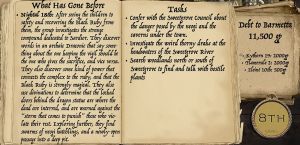 What Has Gone Before
• Night 126: After seeing the children to
safety and recovering the Black Ruby from
them, the group investigates the strange
compound dedicated to Sardior. They discover
words in an archaic Draconic that say some
thing about the one keeping the vigil should be
the one who gives the sacrifice, and vice versa.
They also discover some kind of power that
connects the complex to the ruby, and that the
Black Ruby is strongly magical. They also
use divinations to determine that the locked
doors behind the dragon statue are where the
dead are interred, and are warned against the
"storm that comes to punish" those who vio-
late their rest. Exploring further, they find
swarms of wasp hatchlings, and a newly-open
passage into a deep pit.
Tasks
• Confer with the Sweetgrove Council about
the danger posed by the wasps and the
caverns under the town.
• Investigate the weird thorny drake at the
headwaters of the Sweetgrove River
• Search woodlands north or south of
Sweetgrove to find and talk with hostile
plants
Debt to Barnette
11,500 g
2000g
1000g
500g
8TH